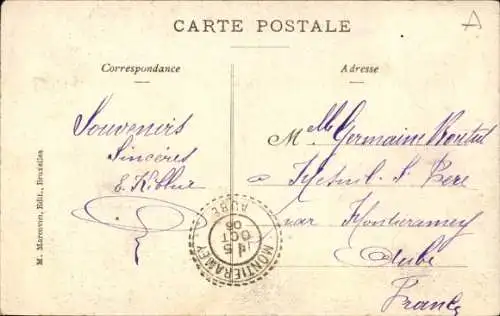 CARTE POSTALE
Correspondance
Adresse
Souvenirs
Sincères
M lle Germaine
à Mesnil St Père
par Montieramey
Aube
France
M. Marcovici, Edit., Bruxelles
MONTIÉRAMEY
AUBE
15
OCT
06